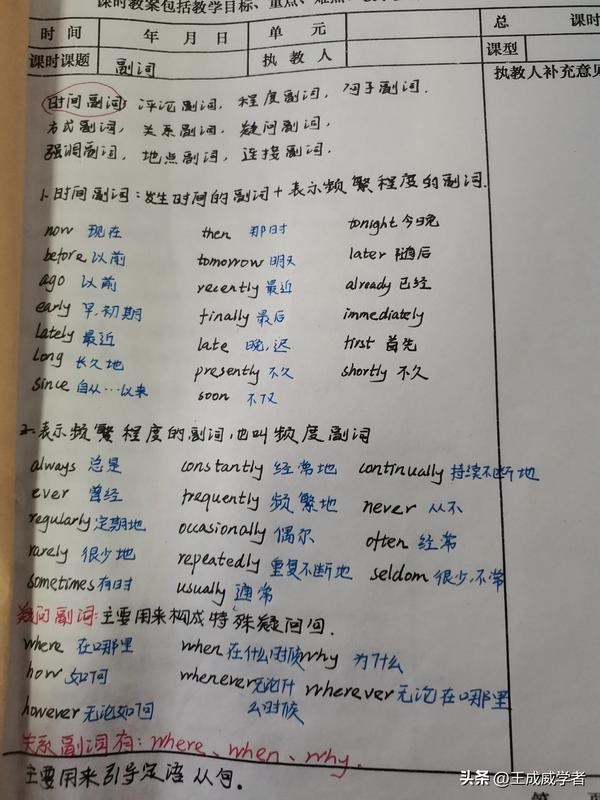 课时教案包括教学目标、重点、难点、
时间 年 月 日 单元 总 课时
课时课题 副词 执教人 课型
执教人补充意见
时间副词，评论副词，程度副词，句子副词.
方式副词，关系副词，疑问副词，
强调副词，地点副词，连接副词.
1.时间副词：发生时间的副词+表示频繁程度的副词.
now 现在 then 那时 tonight 今晚
before 以前 tomorrow 明天 later 随后
ago 以前 recently 最近 already 已经
early 早,初期 finally 最后 immediately
lately 最近 late 晚,迟 first 首先
long 长久地 presently 不久 shortly 不久
since 自从…以来 soon 不久
2.表示频繁程度的副词,也叫频度副词
always 总是 constantly 经常地 continually 持续不断地
ever 曾经 frequently 频繁地 never 从不
regularly 定期地 occasionally 偶尔 often 经常
rarely 很少地 repeatedly 重复不断地 seldom 很少,不常
sometimes 有时 usually 通常
疑问副词:主要用来构成特殊疑问句.
where 在哪里 when 在什么时候 why 为什么
how 如何 whenever 无论什么时候 wherever 无论在哪里
however 无论如何
关系副词有：where、when、why.
主要用来引导定语从句.
头条 @王成威学者